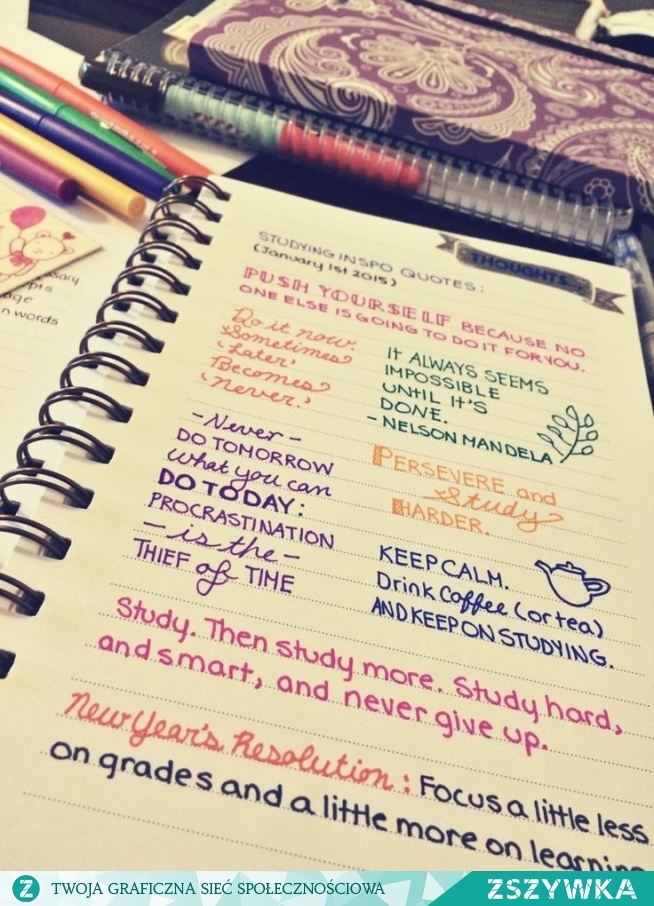 THOUGHTS...
STUDYING INSPO QUOTES:
(January 1st 2015)
PUSH YOURSELF BECAUSE NO
ONE ELSE IS GOING TO DO IT FOR YOU.
Do it now.
Sometimes
'Later'
Becomes
'Never.'
IT ALWAYS SEEMS
IMPOSSIBLE
UNTIL IT'S
DONE.
- NELSON MANDELA
- Never -
DO TOMORROW
what you can
DO TODAY:
PROCRASTINATION
- is the -
THIEF of TIME
PERSEVERE and
Study
HARDER.
KEEP CALM.
Drink Coffee (or tea)
AND KEEP ON STUDYING.
Study. Then study more. Study hard,
and smart, and never give up.
New Year's Resolution: Focus a little less
on grades and a little more on learning
n words
TWOJA GRAFICZNA SIEĆ SPOŁECZNOŚCIOWA
ZSZYWKA